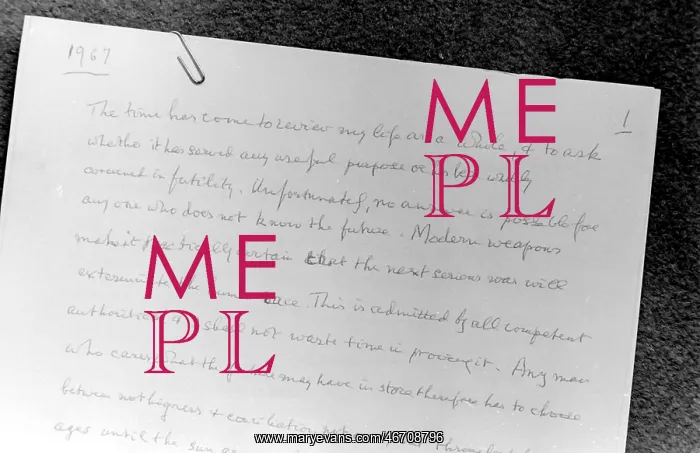 1967
1
The time has come to review my life as a whole, & to ask
whether it has served any useful purpose or has been wholly
concerned in futility. Unfortunately, no answer is possible for
any one who does not know the future. Modern weapons
make it practically certain that the next serious war will
exterminate the human race. This is admitted by all competent
authorities, & I shall not waste time in proving it. Any man
who cares what the future may have in store therefore has to choose
between nothingness & conciliation not throughout
ages until the sun
ME
PL
ME
PL
www.maryevans.com/46708796